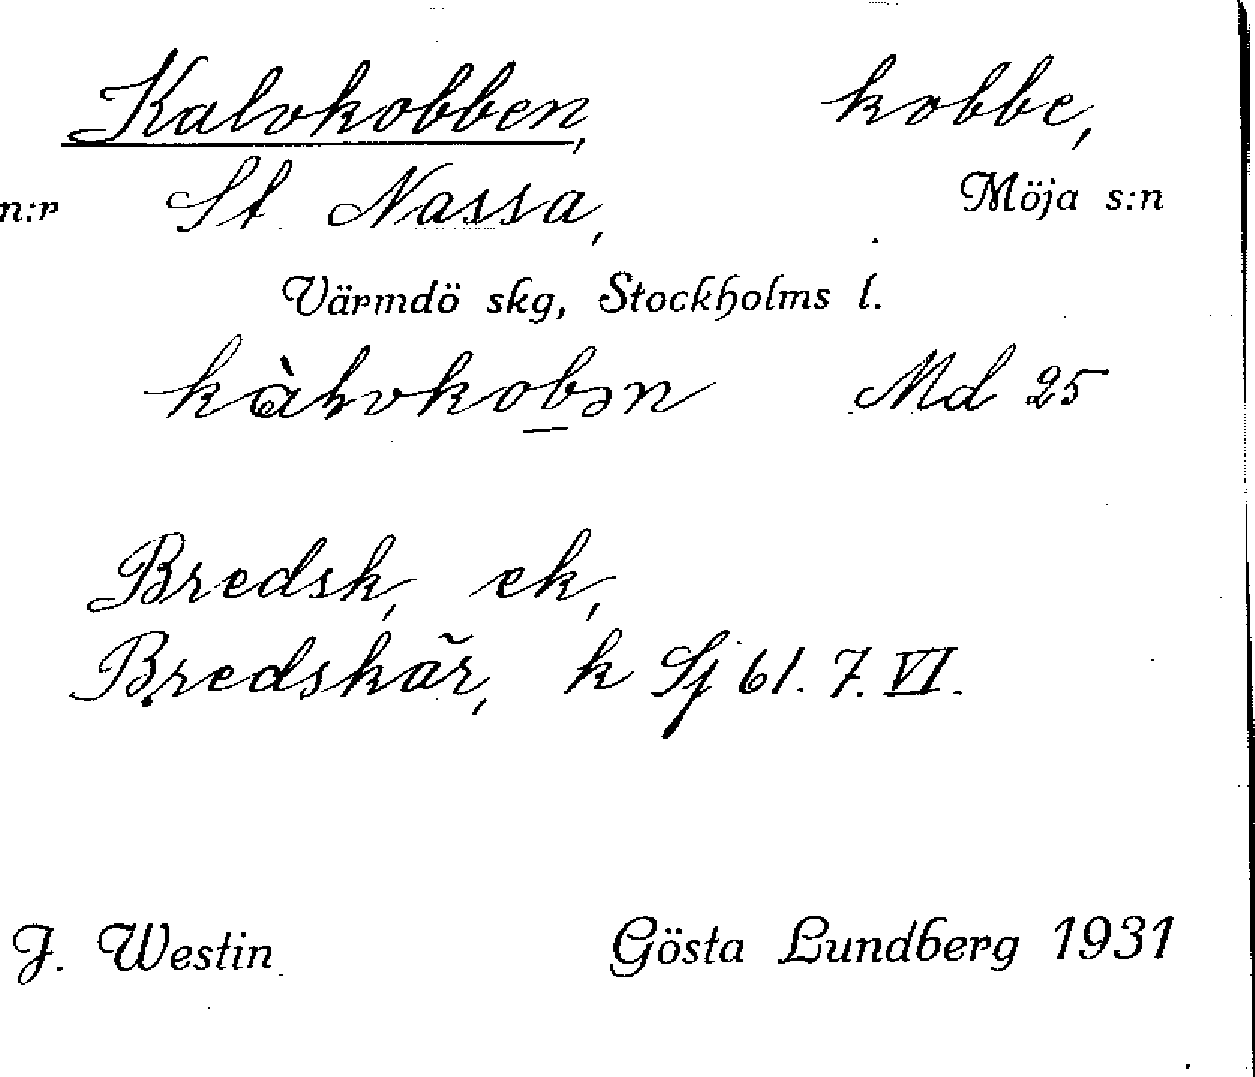 Kalvkobben, kobbe,
n:r St Nassa, Möja s:n
Värmdö skg, Stockholms l.
kàlvkobən Md 25
Bredsk, ek,
Bredskär, k Sj 61. 7. VI.
J. Westin Gösta Lundberg 1931